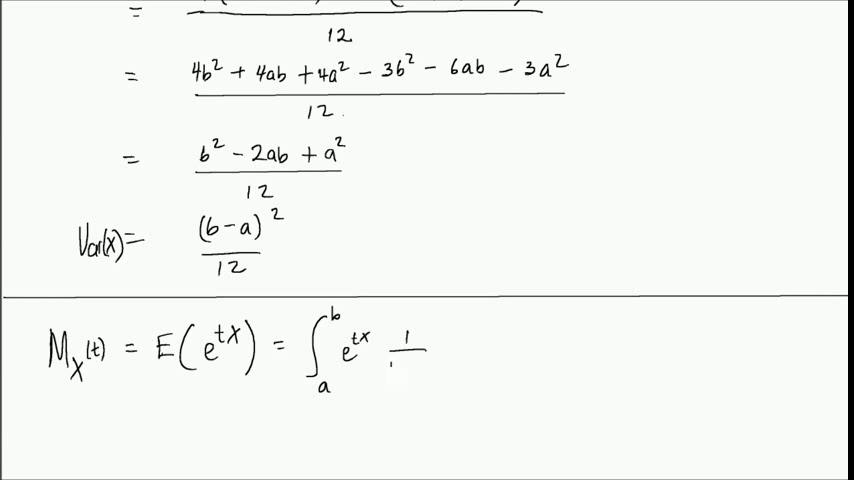 =
12
= 4b² + 4ab + 4a² - 3b² - 6ab - 3a²
12
= b² - 2ab + a²
12
Var(X) = (b-a)²
12
M_X(t) = E(e^{tX}) = ∫_a^b e^{tx} 1